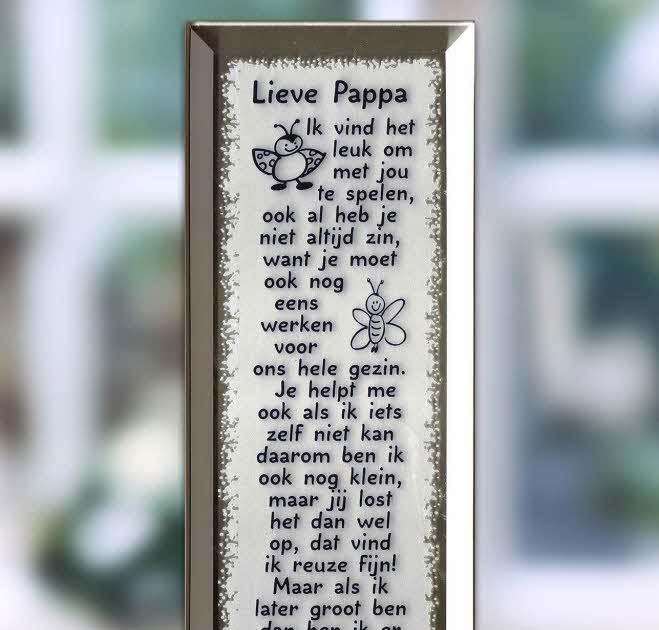 Lieve Pappa
Ik vind het
leuk om
met jou
te spelen,
ook al heb je
niet altijd zin,
want je moet
ook nog
eens
werken
voor
ons hele gezin.
Je helpt me
ook als ik iets
zelf niet kan
daarom ben ik
ook nog klein,
maar jij lost
het dan wel
op, dat vind
ik reuze fijn!
Maar als ik
later groot ben
dan ben ik er